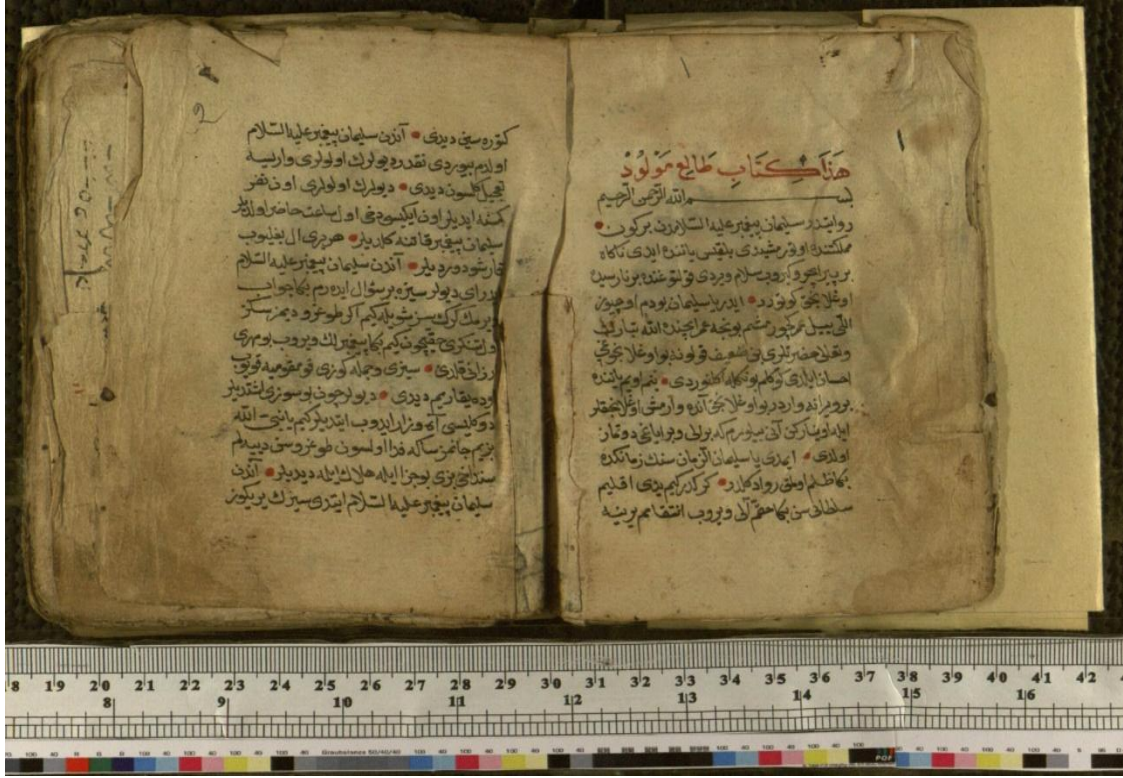 هَذَا كِتَابِ طَالِعِ مَوْلُودْ
بسم الله الرحمن الرحيم
روايتدر سليمان پيغمبر عليه السلامدن بر كون
مملكتنده اوتورمشيدى بلقيس ياننده ايدى ناكاه
بر پير ايچرو كيروب سلام ويردى قولتوغنده بر نارسيده
اوغلانجق كوتورر ايدر يا سليمان بودم اوچيوز
اللى ييل عمر بوجه عمر ايچنده الله تبارك
وتعالى حضرتلرى بن ضعيف قولونه بو اوغلانجوغى
احسان ايلدى كوكلم بونكله اكلنوردى بنم اويم ياننده
بر ويرانه واردر بو اوغلانجق آنده وارمش اوغلانجقلر
ايله اوينارکن آنى بيلورم كه بر الى وبر اياغى دوتمان
اولدى ايمدى يا سليمان آخر زمان سنك زمانكده
بكا ظلم اولمق روا دكلدر كركدر كيم يدى اقليم
سلطانى سن بكا حقم آلى ويروب انتقامم يرينه
كتوره سين ديدى آندن سليمان پيغمبر عليه السلام
اول دم بيوردى نقدر ديولرك اولولرى وار ايسه
تعجيل كلسون ديدى ديولرك اولولرى اون نفر
كمسنه ايديلر اون ايكيسى دخى اول ساعت حاضر اولديلر
سليمان پيغمبر قاتنه كلديلر هر برى ال بغليوب
قارشو دورديلر آندن سليمان پيغمبر عليه السلام
ايدر اى ديولر سيزه بر سؤال ايده رم بكا جواب
ويرمك كرك سز شويله كيم اكر طوغرو ديمزسكز
اول تنكرى حقيچون كيم بكا پيغمبرلك ويروب بو مهرى
ارزانى قلدى سيزى وجمله كوزى قومقوميه قويوب
اوده يقاريم ديدى ديولر چون بو سوزى اشتديلر
دوكليسى آه وزار ايدوب ايتديلر كيم يا نبى الله
بزيم جانمز ساكه فدا اولسون طوغروسن دييه لم
سن دخى بزى بوجزا ايله هلاك ايله ديديلر آندن
سليمان پيغمبر عليه السلام ايتدى سيزك بريكوز